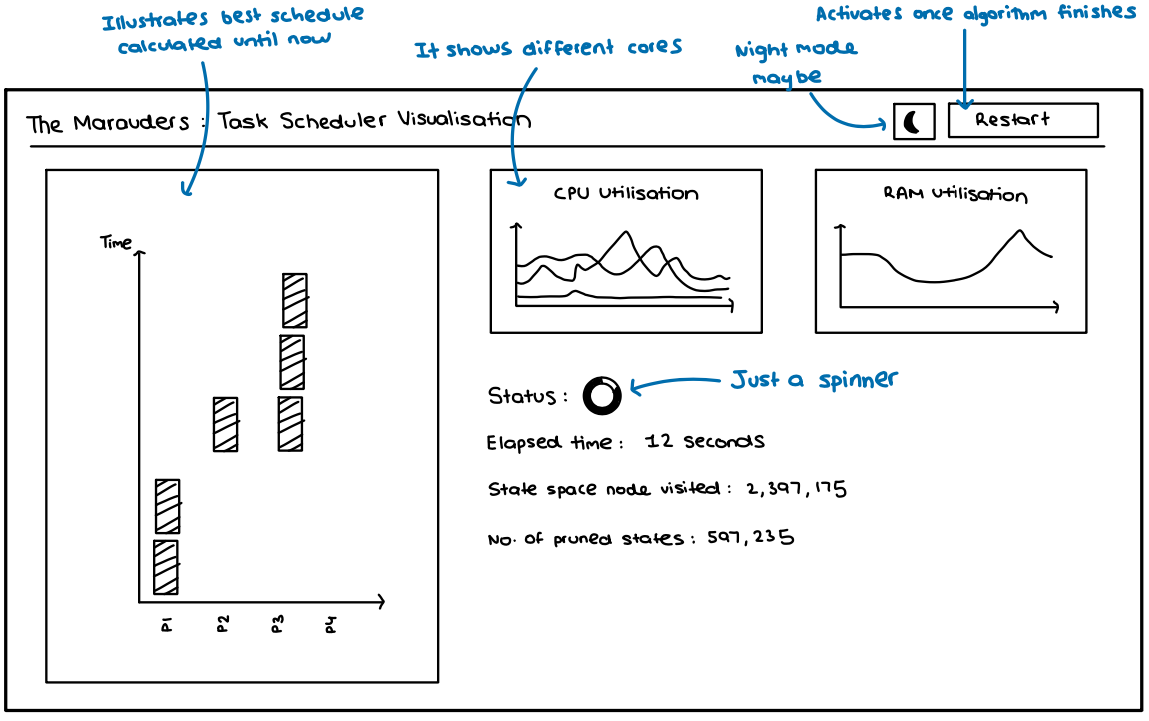 Illustrates best schedule
calculated until now
It shows different cores
Night mode
maybe
Activates once algorithm finishes
The Marauders : Task Scheduler Visualisation
Restart
CPU Utilisation
RAM Utilisation
Time
P1
P2
P3
P4
Status :
Just a spinner
Elapsed time : 12 seconds
State space node visited : 2,397,175
No. of pruned states : 597,235